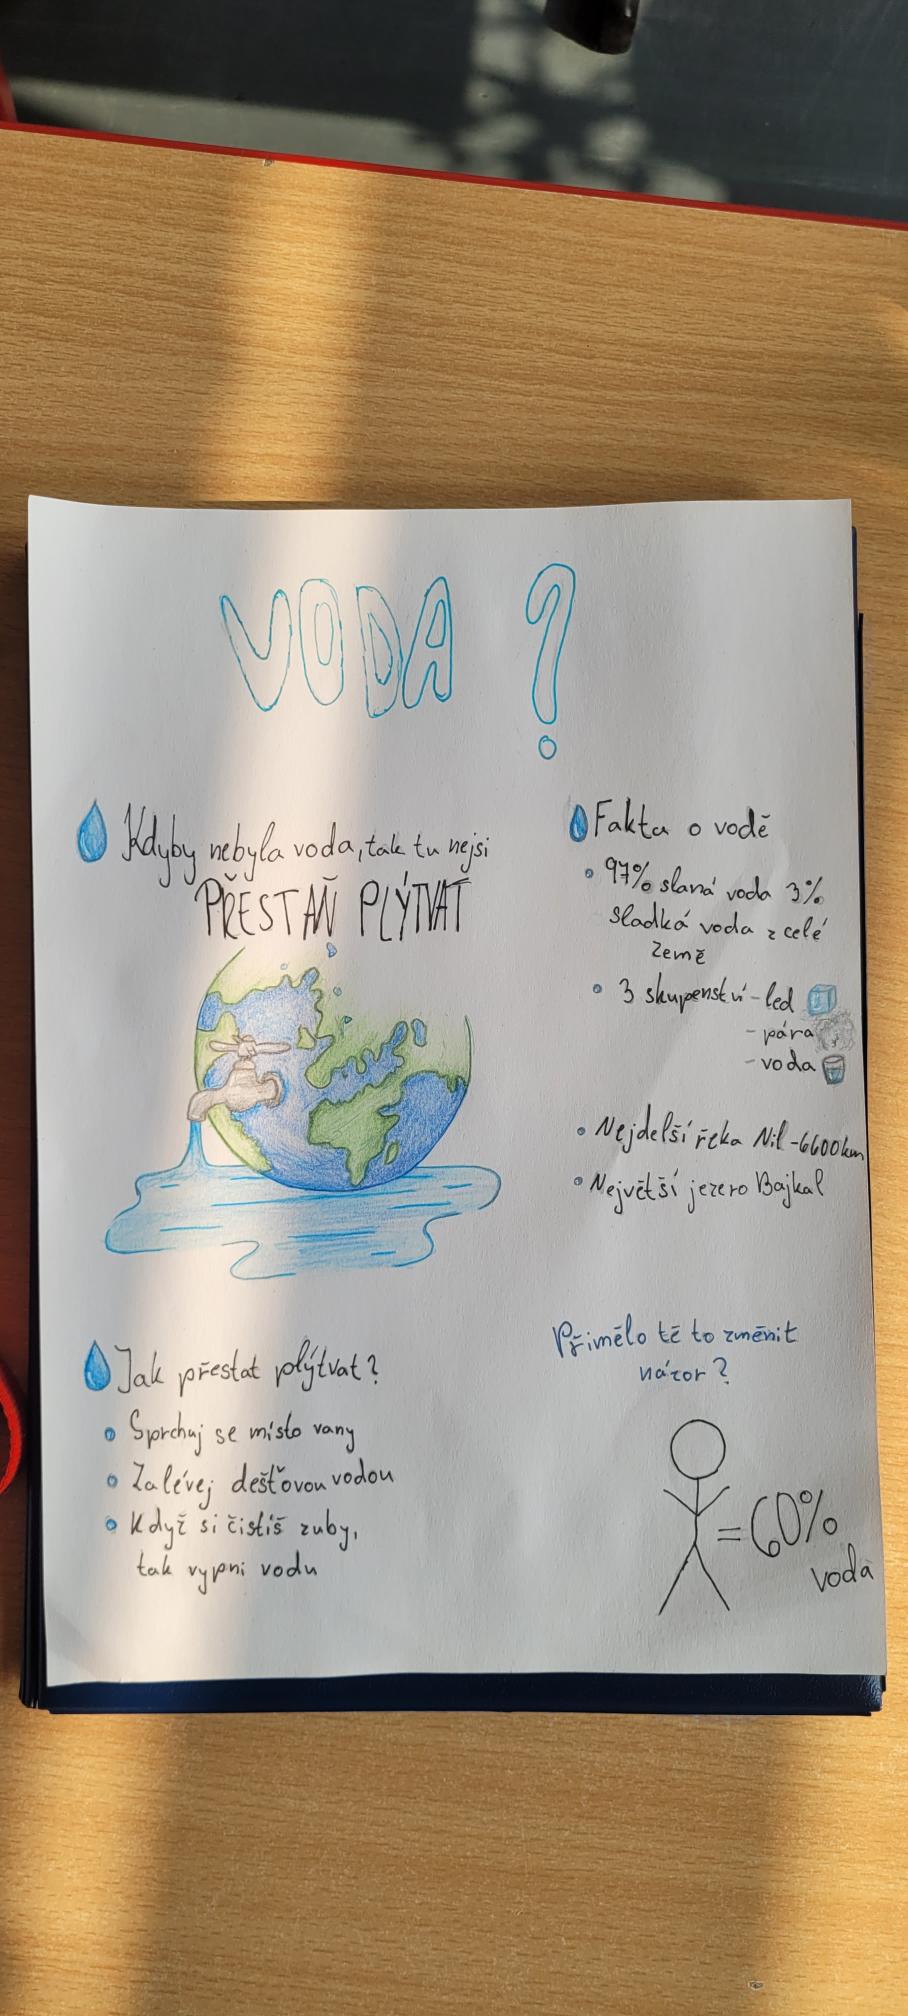 VODA ?
Kdyby nebyla voda, tak tu nejsi
PŘESTAŇ PLÝTVAT
Fakta o vodě
97% slaná voda 3%
sladká voda z celé
Země
3 skupenství - led
- pára
- voda
Nejdelší řeka Nil - 6600km
Největší jezero Bajkal
Jak přestat plýtvat?
Sprchuj se místo vany
Zalévej dešťovou vodou
Když si čistíš zuby,
tak vypni vodu
Přimělo tě to změnit
názor?
= 60%
voda